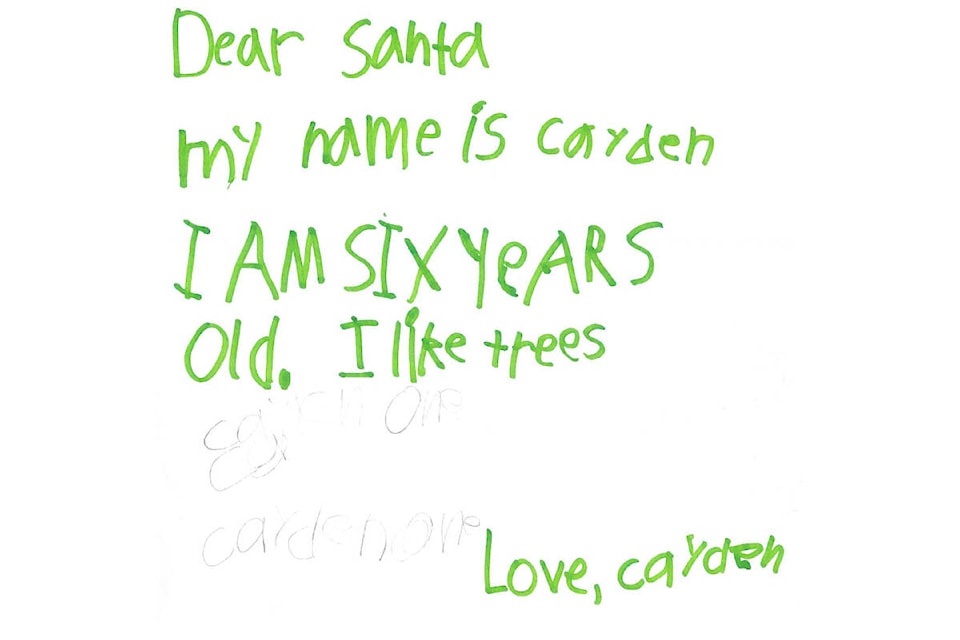 Dear Santa
my name is cayden
I AM SIX YeARS
Old. I like trees
cayden One
cayden one
Love, cayden